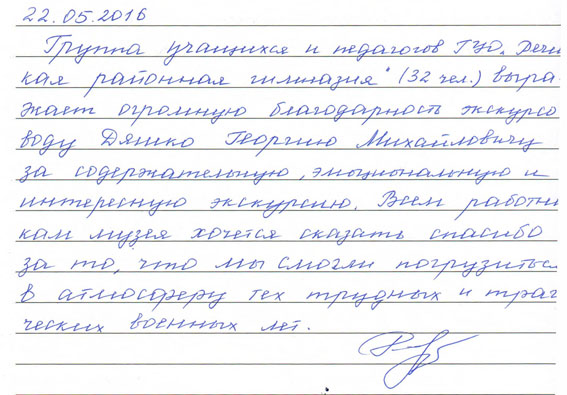 22.05.2016
Группа учащихся и педагогов ГУО „Речи
кая районная гимназия" (32 чел.) выра
жает огромную благодарность экскурсо
воду Дяшко Георгию Михайловичу
за содержательную, эмоциональную и
интересную экскурсию. Всем работни
кам музея хочется сказать спасибо
за то, что мы смогли погрузиться
в атмосферу тех трудных и траг
ческих военных лет.